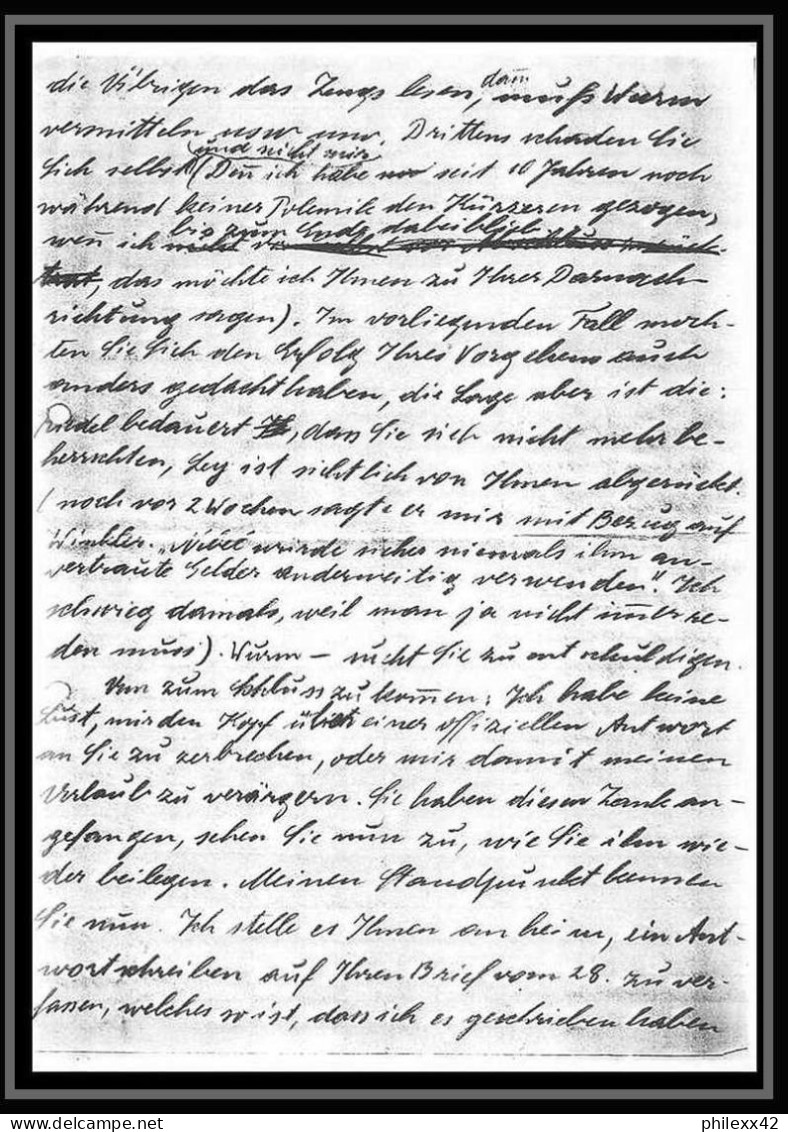 die Übrigen das Zeugs lesen, dann muß Wurm
vermitteln usw usw. Drittens schaden Sie
und nicht mir
Sich selbst (Deñ ich habe seit 10 Jahren noch
während keiner Polemik den Kürzeren gezogen,
bis zum Ende dabeiblieb
weñ ich
, das möchte ich Ihnen zu Ihrer Darnach-
richtung sagen). Im vorliegenden Fall moch-
ten Sie Sich den Erfolg Ihres Vorgehens auch
anders gedacht haben, die Lage aber ist die:
Riedel bedauert, dass Sie sich nicht mehr be-
herrschten, Ley ist sichtlich von Ihnen abgerückt.
(noch vor 2 Wochen sagte er mir mit Bezug auf
Winkler: „ würde sicher niemals ihm an-
vertraute Gelder anderweitig verwenden". Ich
schwieg damals, weil man ja nicht im̄er re-
den muss). Wurm – sucht Sie zu entschuldigen.
Um zum Schluss zu kom̄en: Ich habe keine
Lust, mir den Kopf über einer offiziellen Antwort
an Sie zu zerbrechen, oder mir damit meinen
Urlaub zu verärgern. Sie haben diesen Zank an-
gefangen, sehen Sie nun zu, wie Sie ihn wie-
der beilegen. Meinen Standpunkt kennen
Sie nun. Ich stelle es Ihnen anheim, ein Ant-
wortschreiben auf Ihren Brief vom 28. zu ver-
fassen, welches so ist, dass ich es geschrieben haben
delcampe.net
philexx42